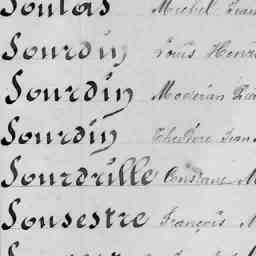 Soulas Michel Jean
Sourdin Louis Henri
Sourdin
Sourdin Théodore Jean
Sourdrille Constant M
Sousestre François M